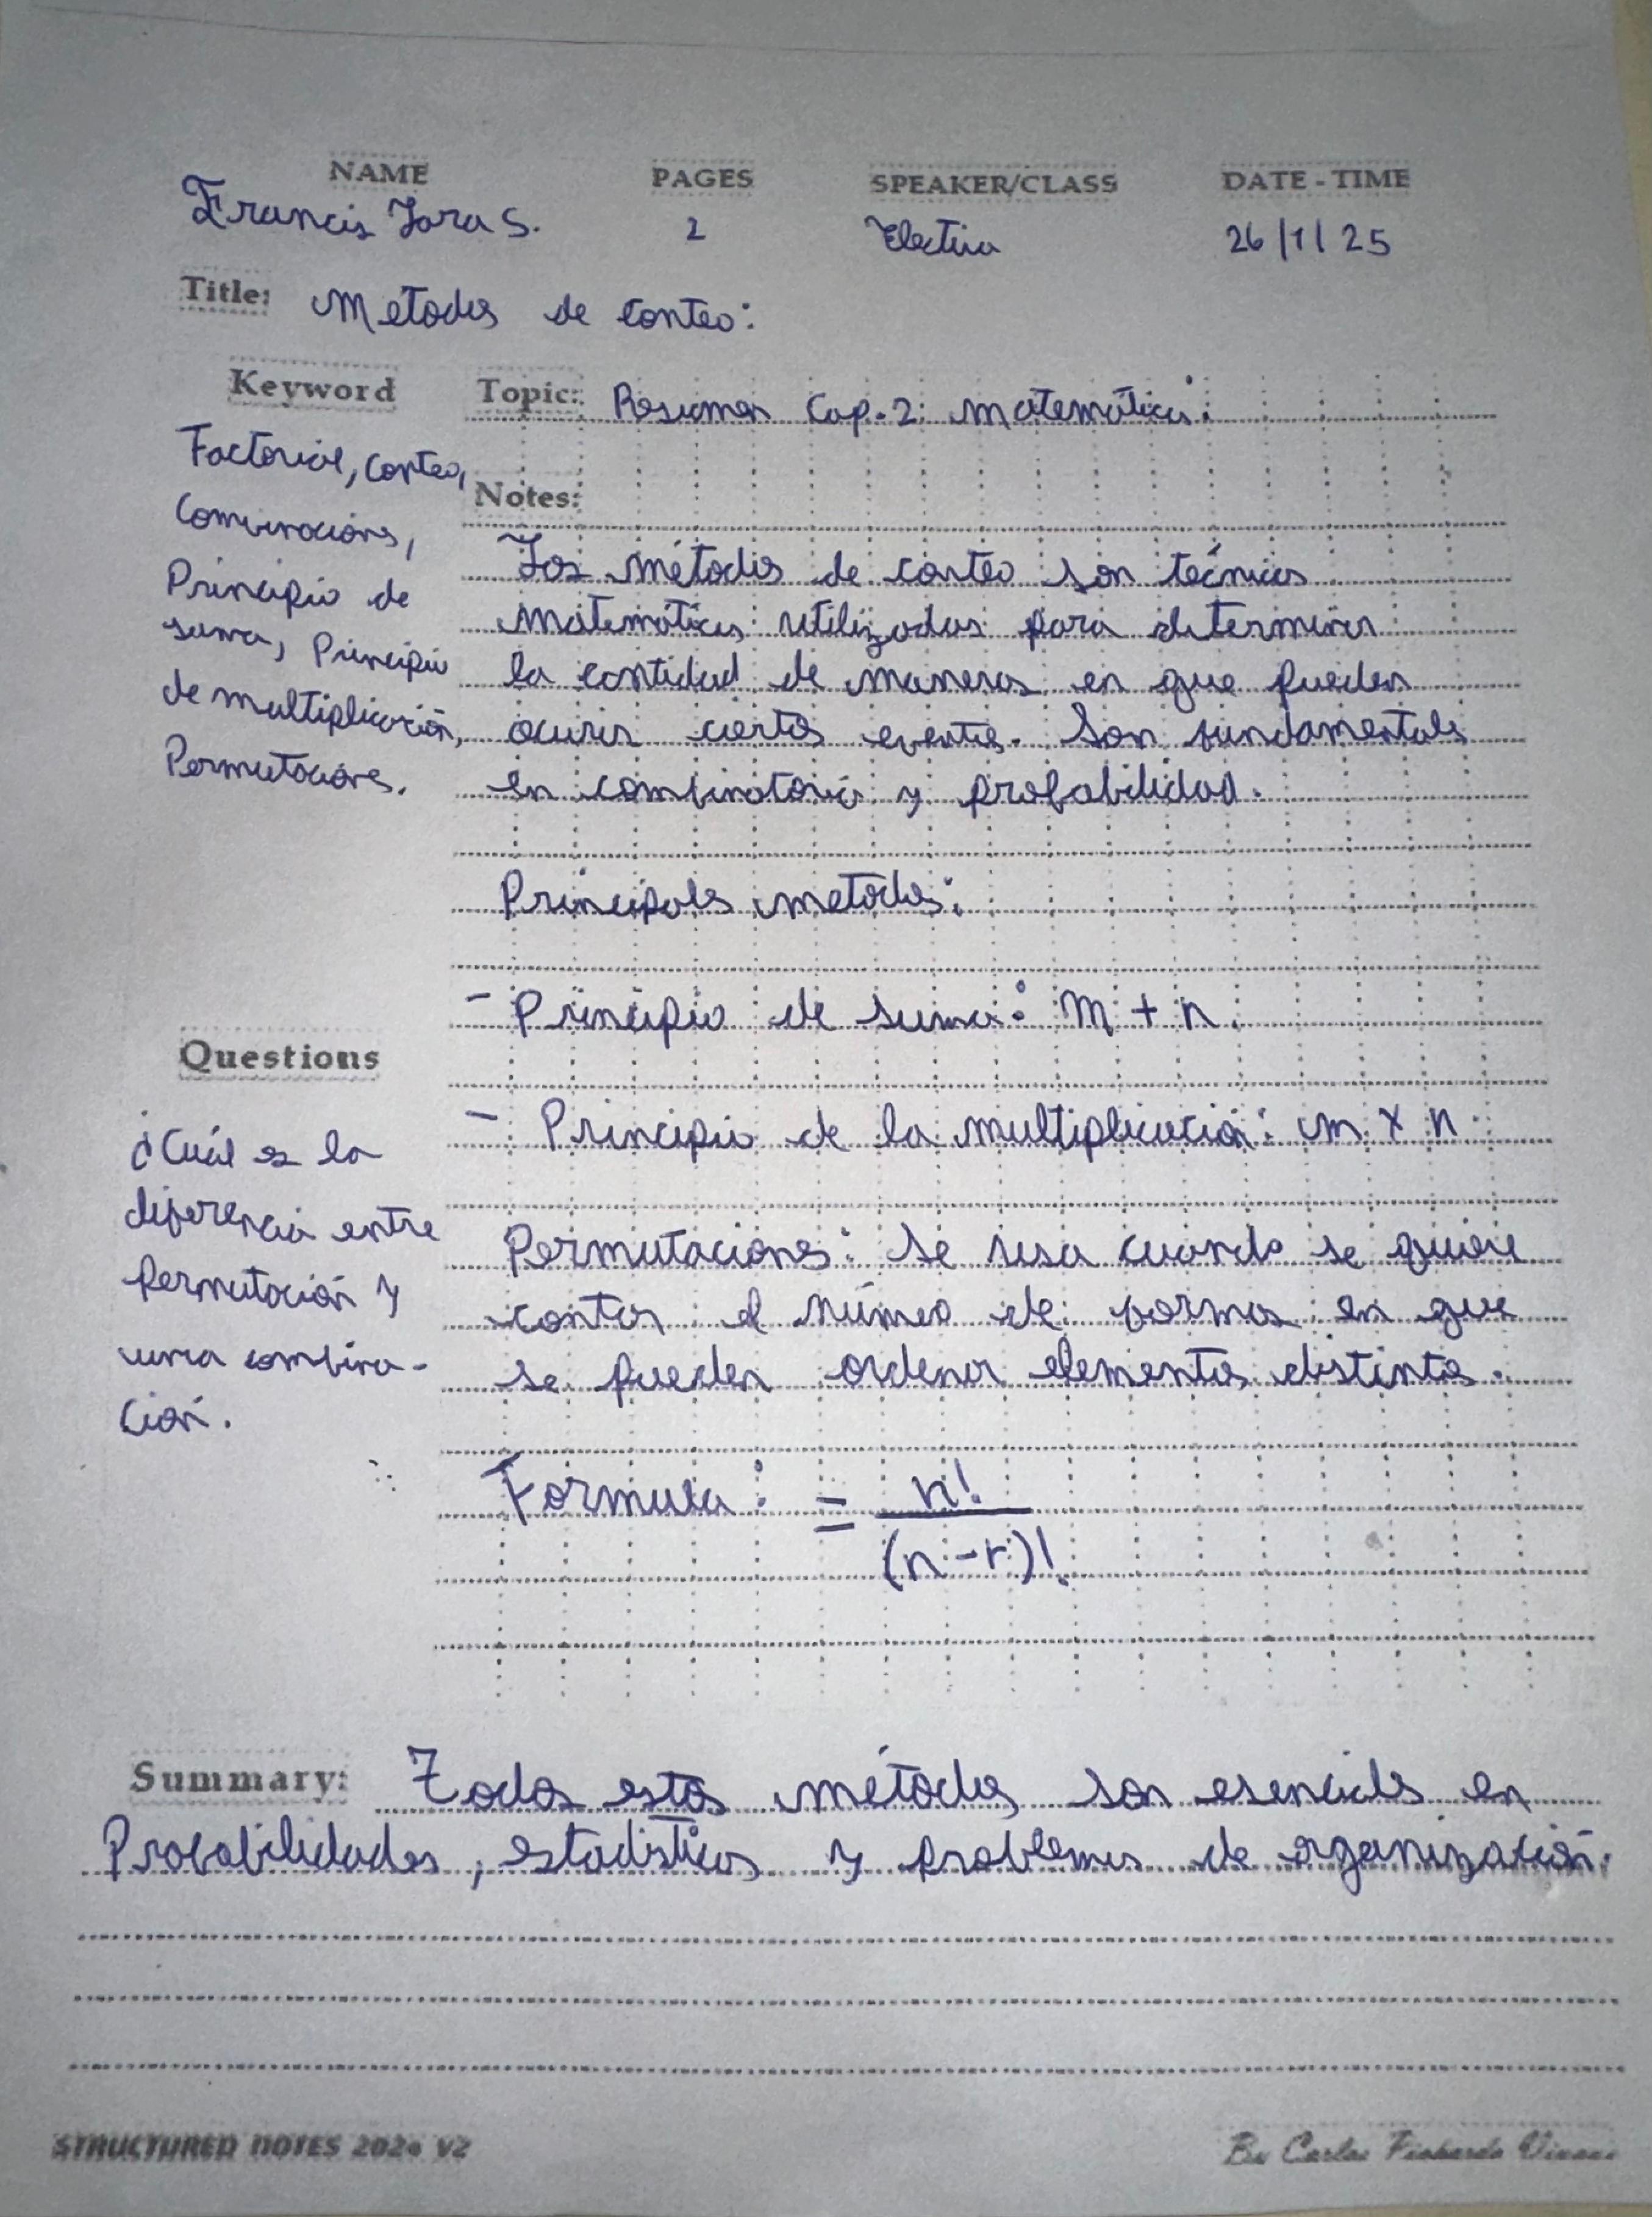 NAME PAGES SPEAKER/CLASS DATE - TIME
Francis Jara S. 2 Electiva 26/1/25
Title: Metodos de conteo:
Keyword
Factorial, conteo,
Combinacions,
Principio de
suma, Principio
de multiplicación,
Permutacions.
Topic: Resumen Cap. 2: matemática:
Notes:
Los métodos de conteo son técnicas
matemáticas utilizadas para determinar
la cantidad de maneras en que pueden
ocurir ciertos eventos. Son fundamentales
en combinatoria y probabilidad.
Principales metodos:
- Principio de suma: m + n.
- Principio de la multiplicación: m x n
Permutaciones: Se usa cuando se quiere
contar el número de formas en que
se pueden ordenar elementos distintos.
Formula: = n!
(n-r)!
Questions
¿Cuál es la
diferencia entre
permutación y
una combina-
ción.
Summary: Todos estos métodos son esenciales en
Probabilidades, estadísticas y problemas de organización.
STRUCTURED NOTES 2024 V2
By Carlos